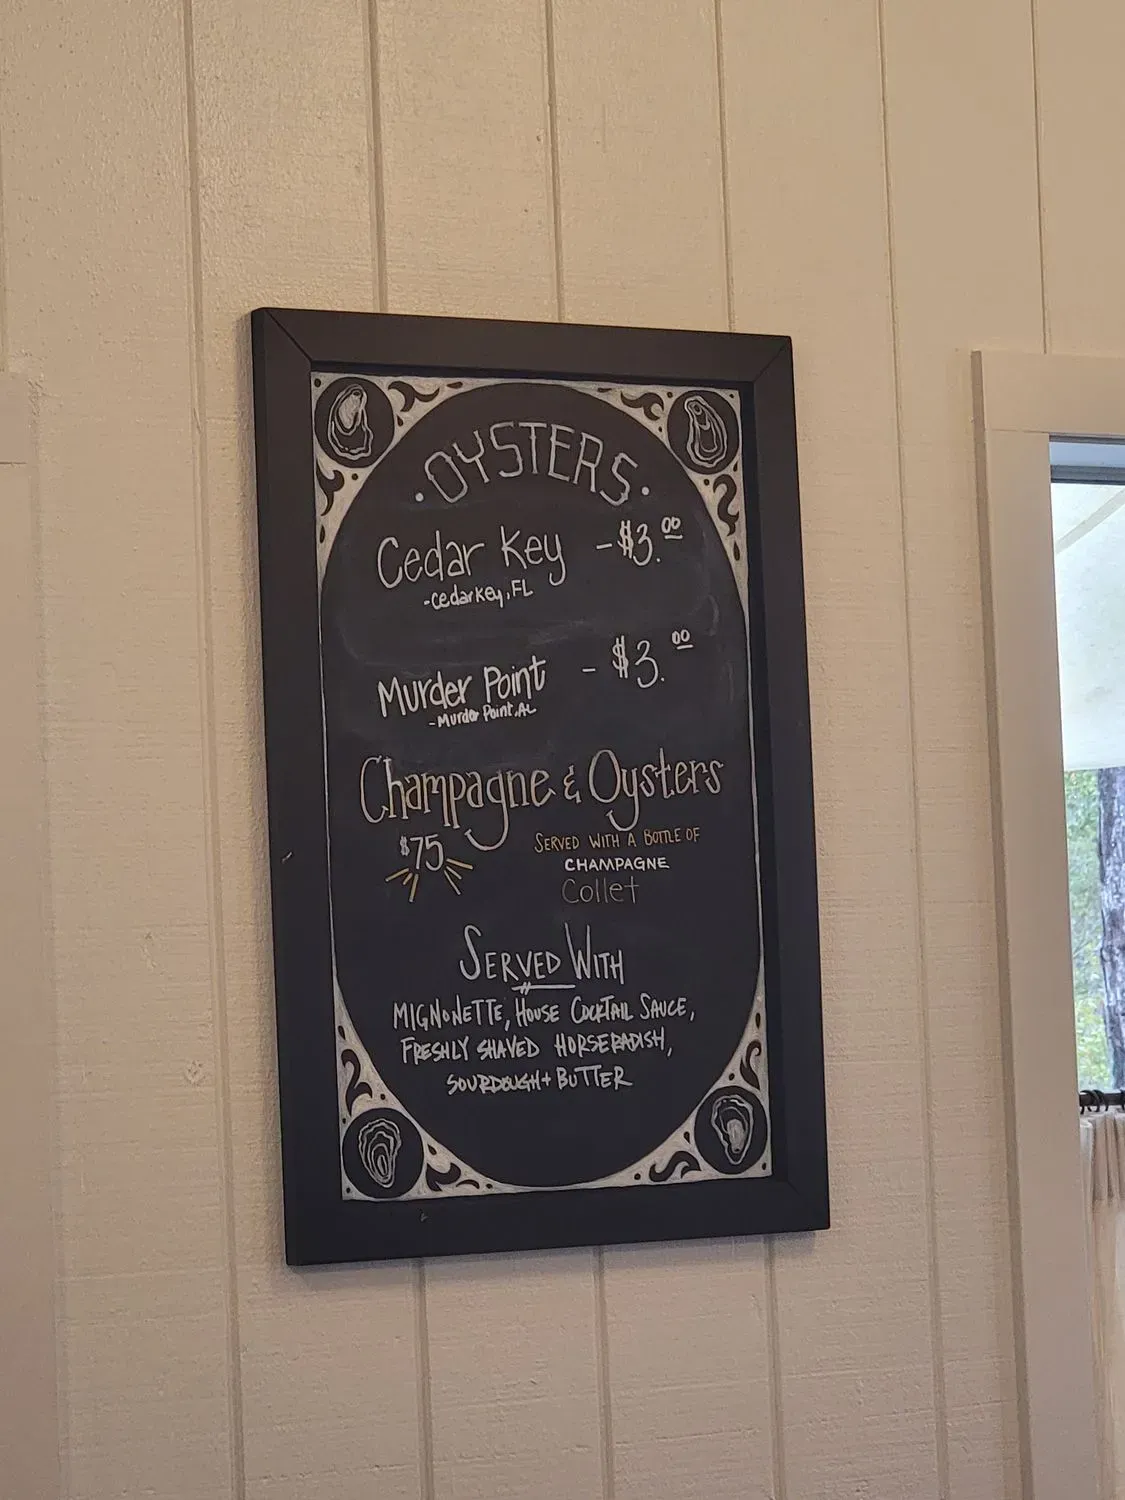 ·OYSTERS·
Cedar Key -$3.00
-Cedar Key, FL
Murder Point - $3.00
-Murder Point, AL
Champagne & Oysters
$75
SERVED WITH A BOTTLE OF
CHAMPAGNE
Collet
SERVED WITH
MIGNONETTE, HOUSE COCKTAIL SAUCE,
FRESHLY SHAVED HORSERADISH,
SOURDOUGH + BUTTER